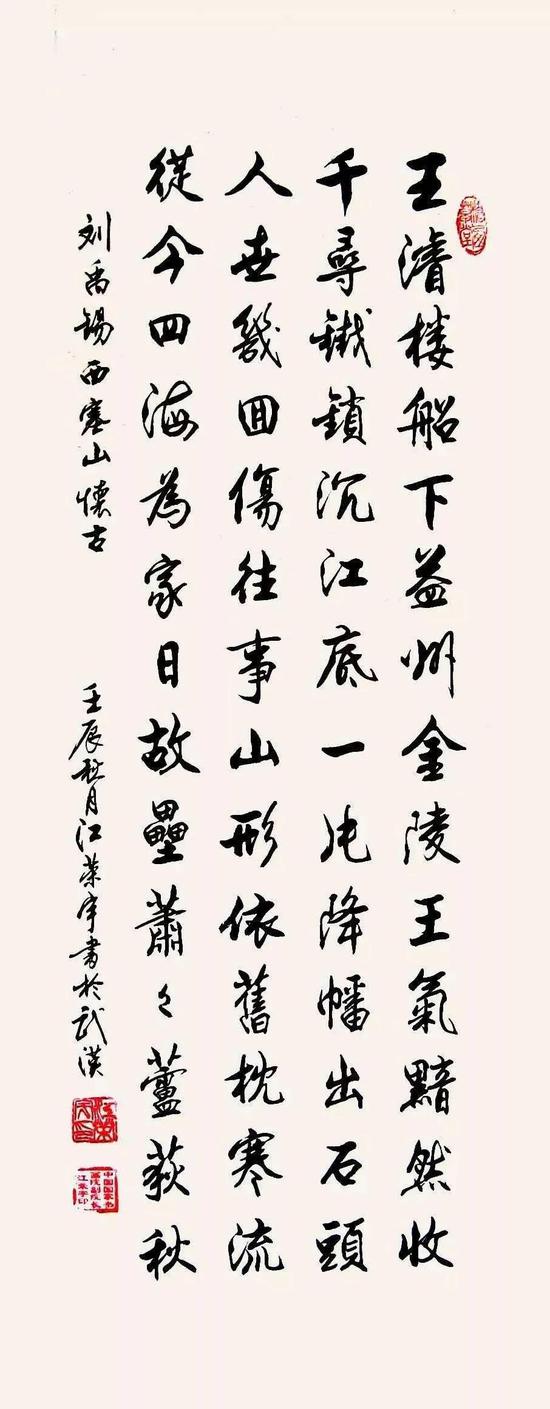 王濬楼船下益州金陵王氣黯然收
千尋鐵鎖沉江底一片降幡出石頭
人世幾囬傷往事山形依舊枕寒流
從今四海為家日故壘蕭々蘆荻秋
刘禹锡西塞山懷古
壬辰秋月江荣宇書於武漢
中国国家书
画院副院长
江荣宇印